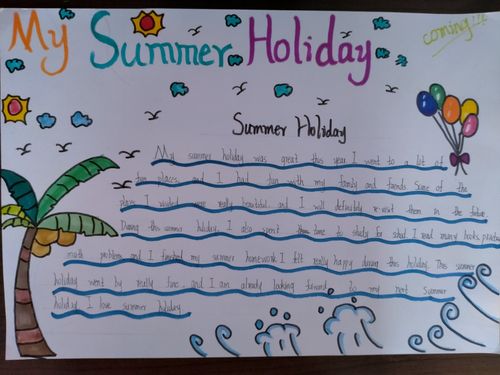 My Summer Holiday
coming!!!
Summer Holiday
My summer holiday was great this year. I went to a lot of
fun places and I had fun with my family and friends. Some of the
places I visited were really beautiful and I will definitely revisit them in the future.
During this summer holiday, I also spent time to study for school. I read many books,
math problem and I finished my summer homework. I felt really happy during this holiday. This summer
holiday went by really and I am already looking forward to my next summer
holiday. I love summer holiday.